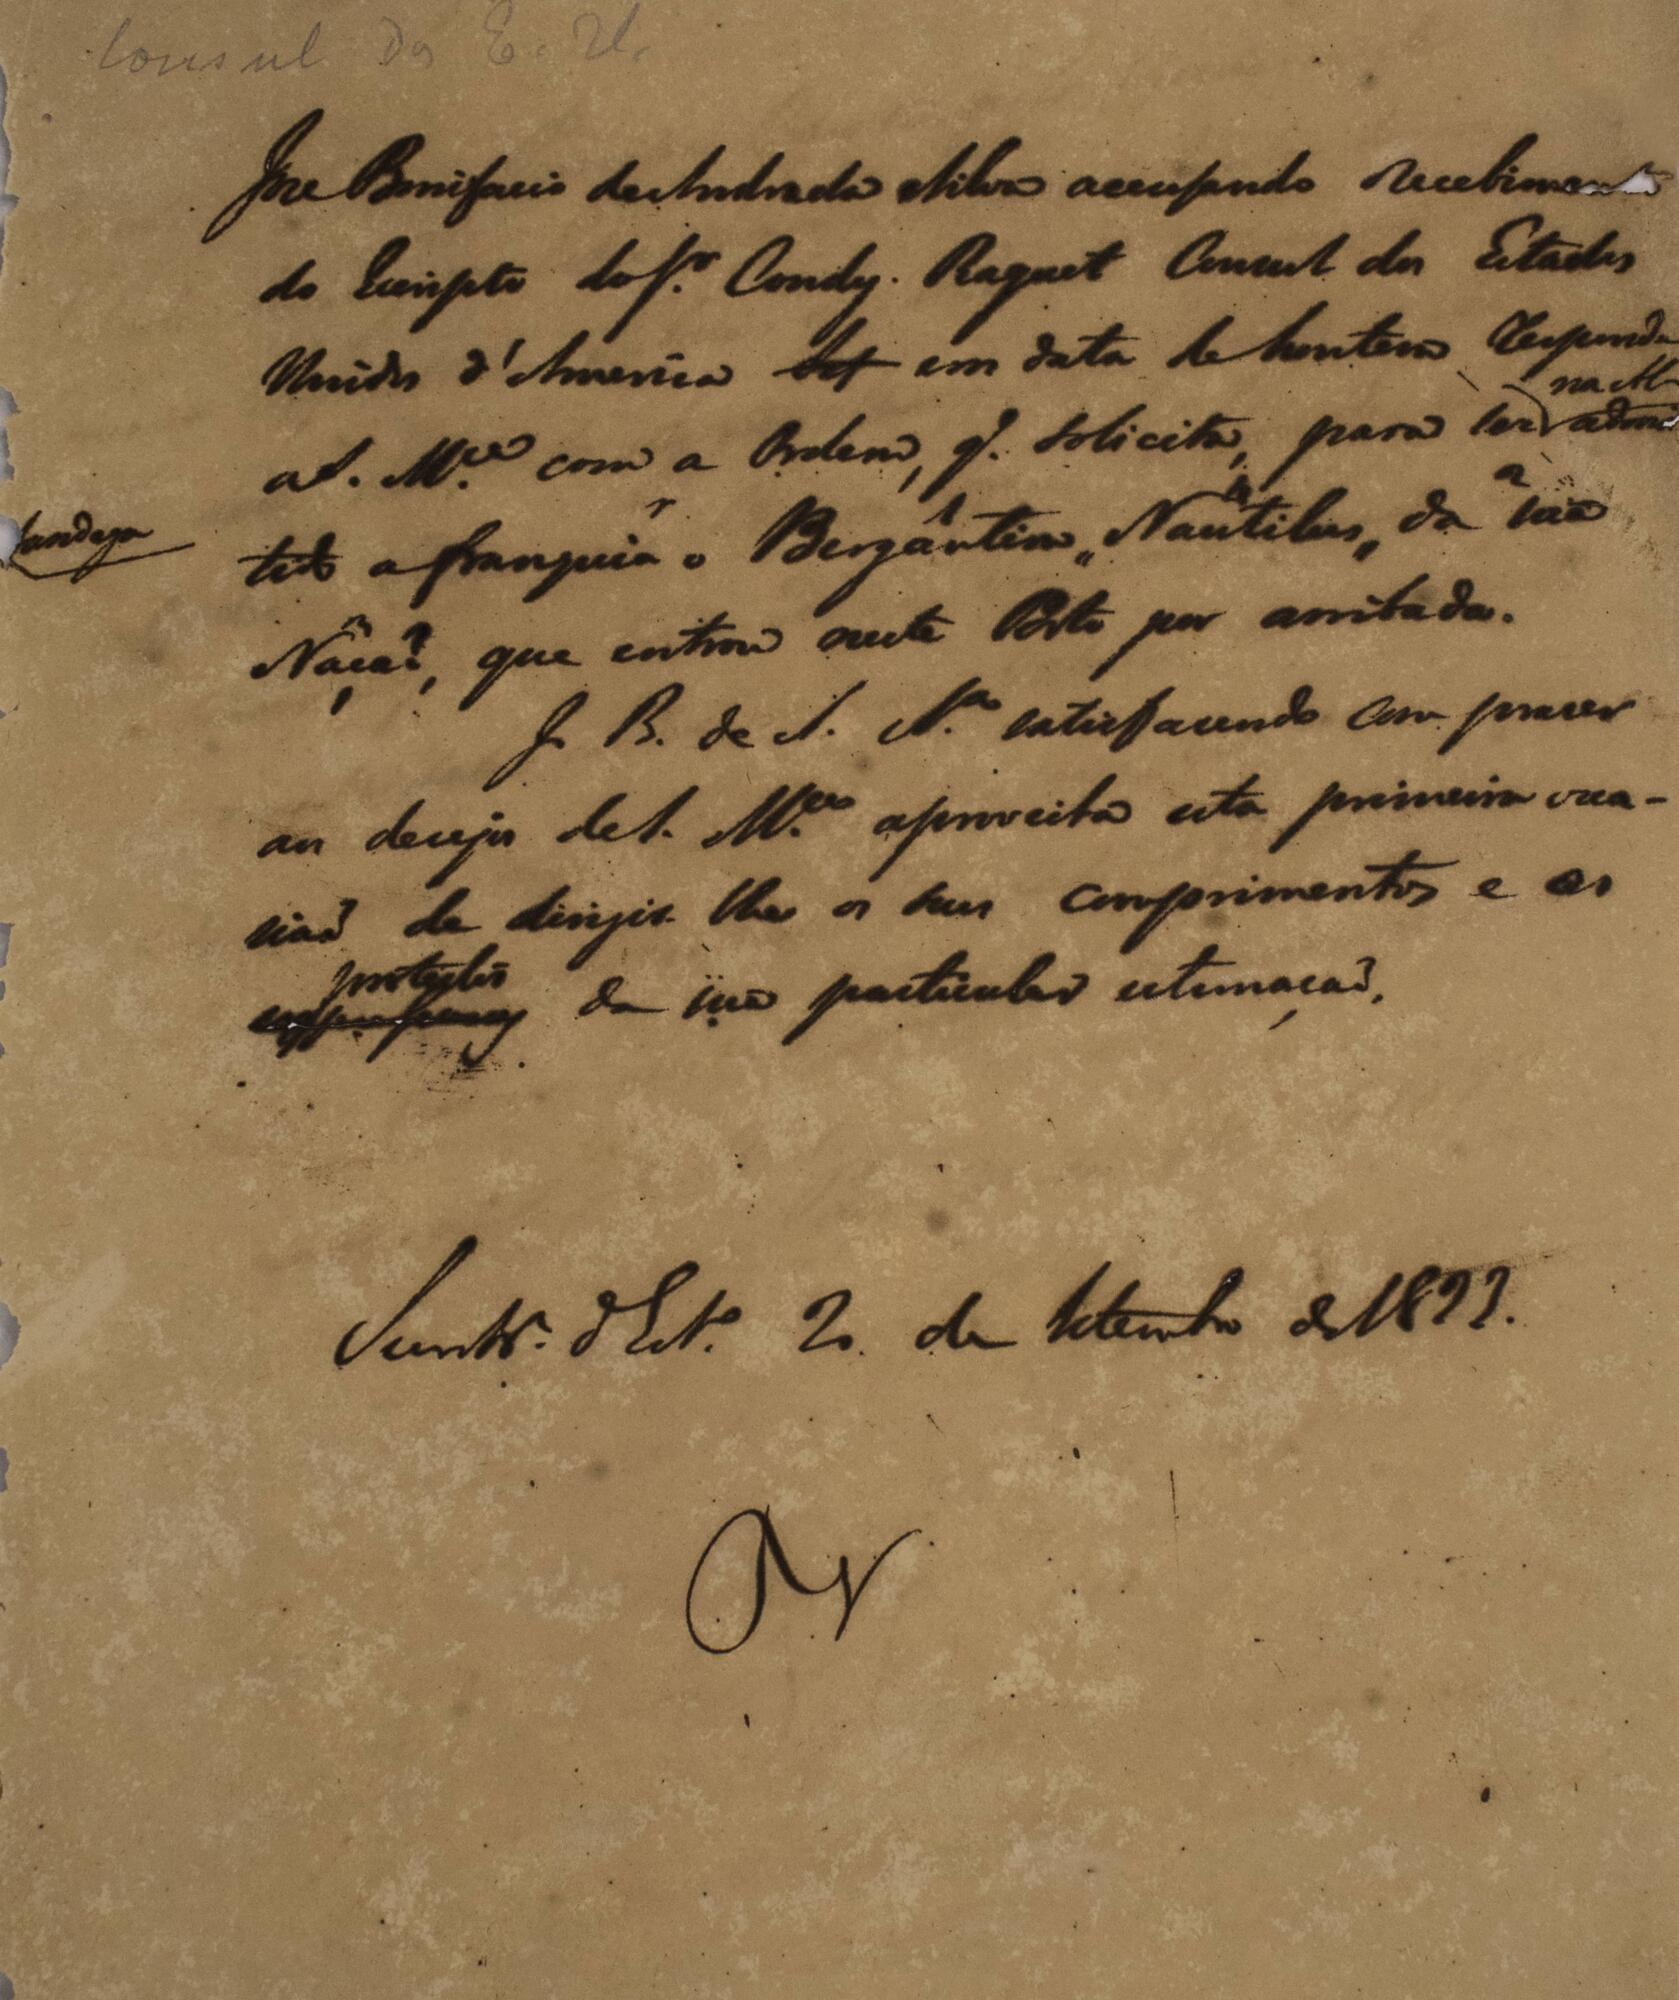 Consul dos E. U.
Jose Bonifacio de Andrada e Silva accusando recebimento
do Escripto do Sr. Condy Raguet Consul dos Estados
Unidos d'America em data de hontem responde
a S. Mce com a Ordem, q. solicita, para ser na Al-
fandega
admit-
tido a franquia o Bergantim „Nautilus„ da sua
Naçaõ, que entrou neste Porto por arribada.
J. B. de A. S.a satisfazendo com prazer
aos desejos de S. Mce aproveita esta primeira occa-
siaõ de dirigir-lhe os seus comprimentos e os
protestos
da sua particular estimaçaõ.
Secretr. d'Est.o 2 de Setembro de 1822.